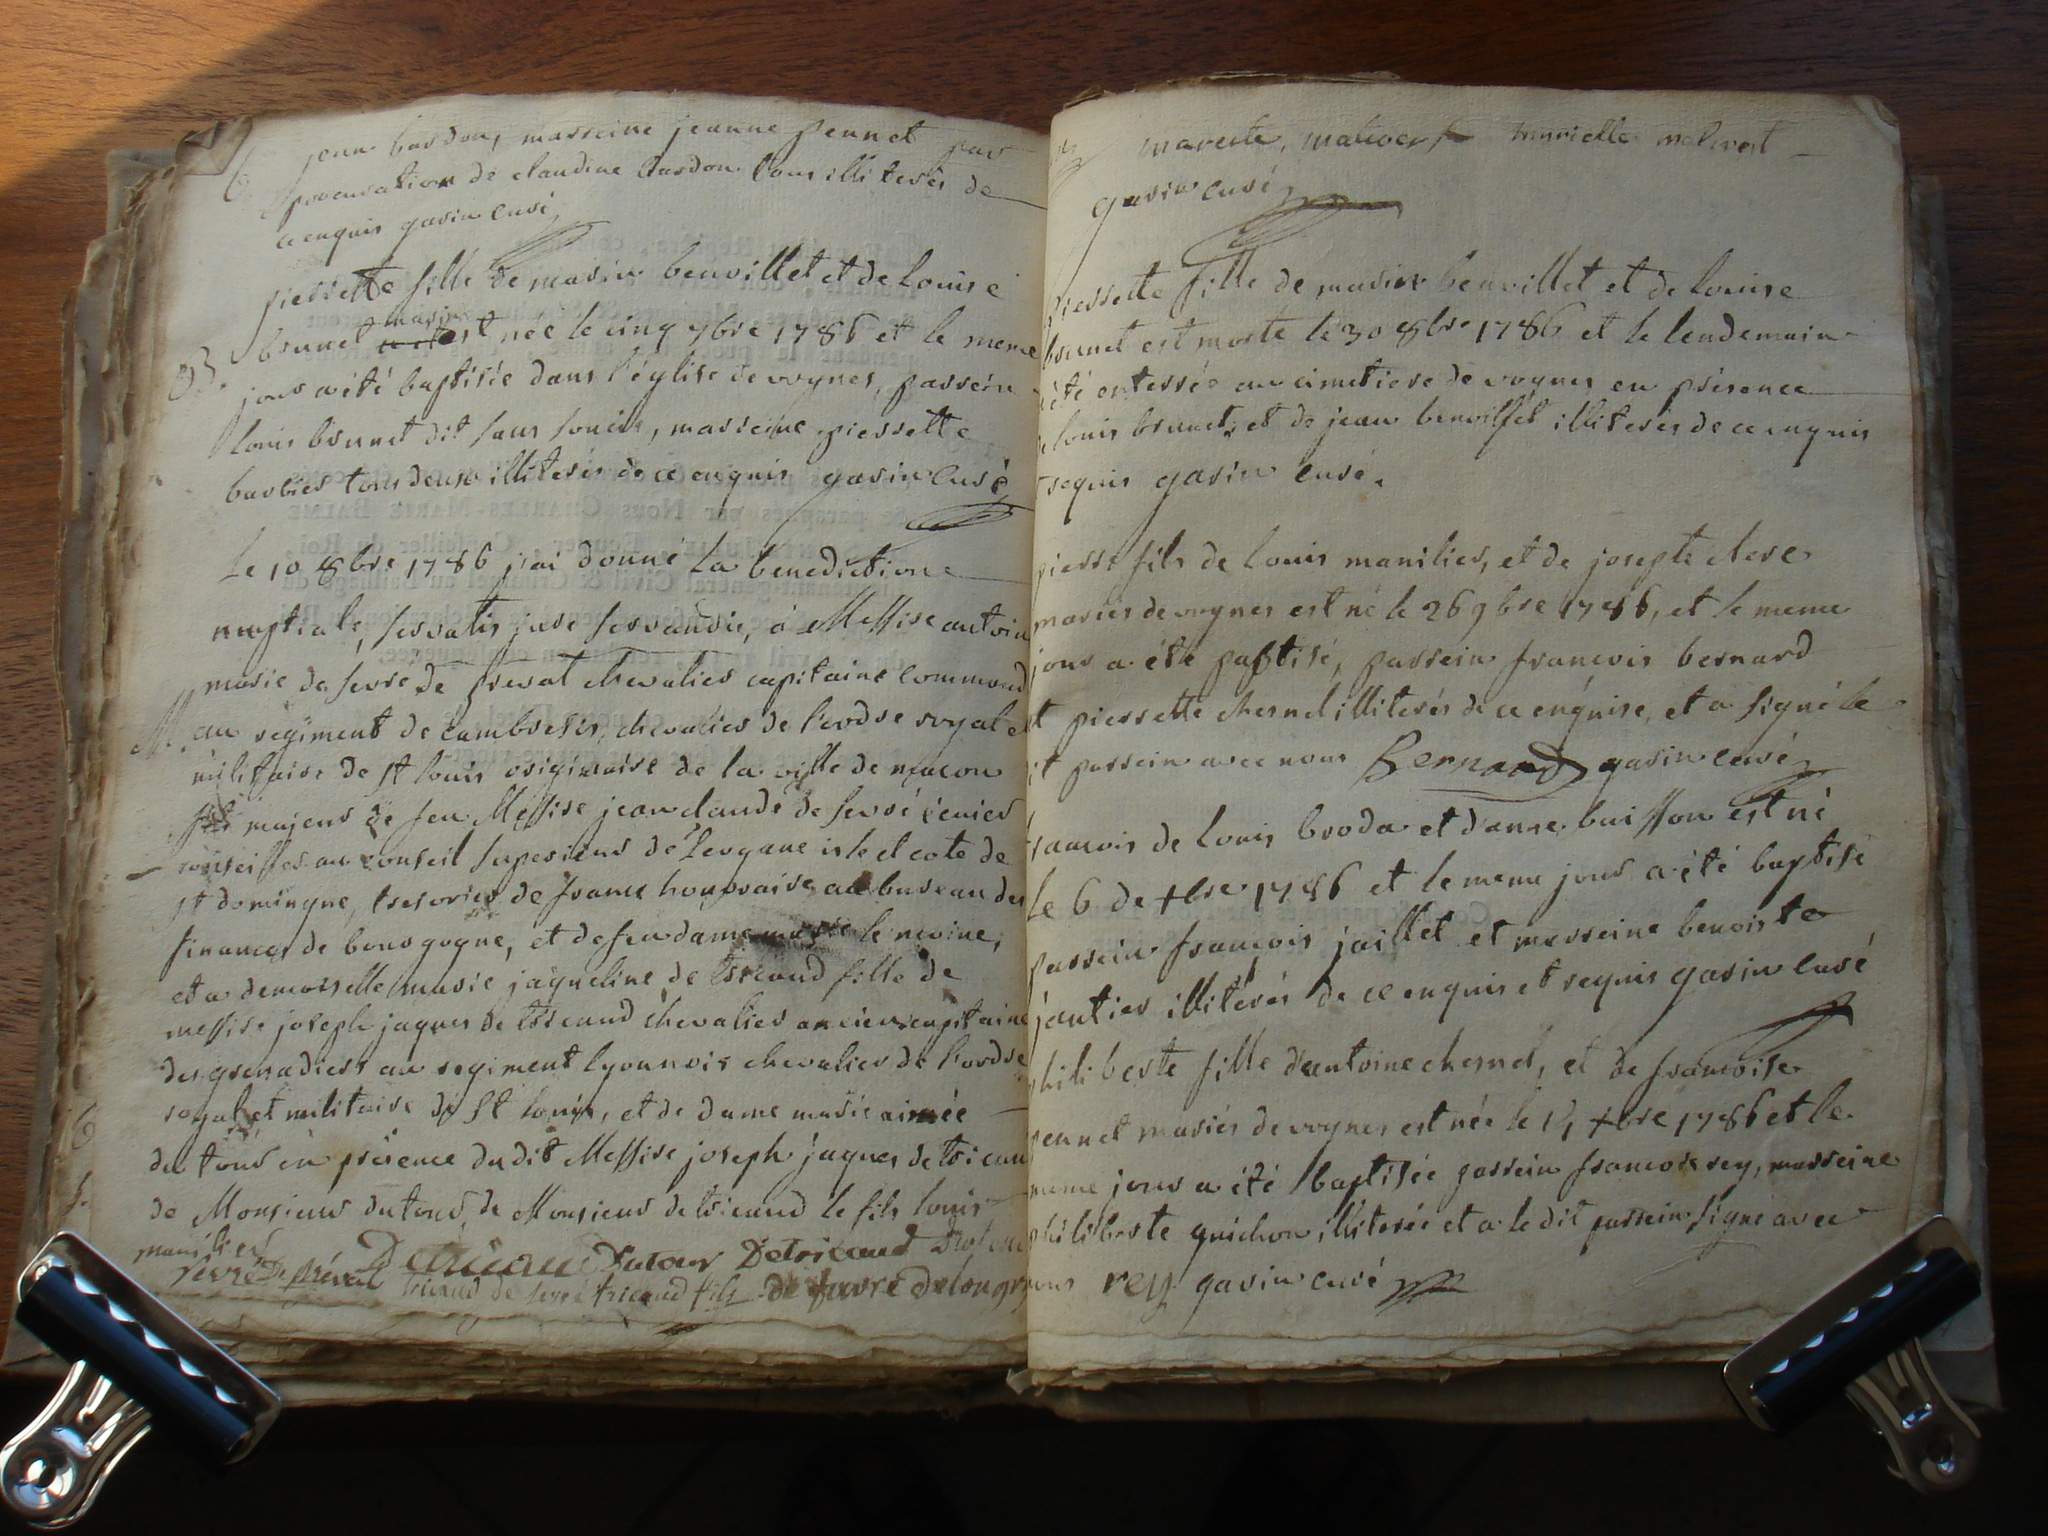 jean bardon, marreine jeanne pennet par
procuration de claudine bardon tous illiterés de
ce enquis gavin curé
pierrette fille de marin benvillet et de louise
mariés
brunet est née le cinq 7bre 1786 et le meme
jour a été baptisée dans l'église de vognes, parrein
louis brunet dit sans soucis, marreine pierrette
barbier tous deux illiterés de ce enquis gavin curé
Le 10 8bre 1786 j'ai donné la benediction
nuptiale, servatis jure servandis, à Messire antoine
marie de sevré de preval chevalier capitaine command
M. au régiment de cambresis, chevalier de l'ordre royal et
militaire de st louis originaire de la ville de macon
fils majeur de feu Messire jean claude de sevré écuier
conseiller au conseil superieur de léogane isle et cote de
st domingue, tresorier de france honoraire au bureau des
finances de bourgogne, et de feu dame marie le moine,
et a demoiselle marie jaqueline de tricaud fille de
messire joseph jaques de tricaud chevalier ancien capitaine
des grenadiers au regiment lyonnois chevalier de l'ordre
royal et militaire de st louis, et de dame marie aimée
du tour en présence dudit Messire joseph jaques de tricaud
de Monsieur dutour, de Monsieur de tricaud le fils louis
manilier
Sevré De préval Detricaud Dutour Detricaud
tricaud de sevré tricaud fils de
marette, malivert henriette malivert
gavin curé
pierrette fille de marin benvillet et de louise
brunet est morte le 30 8bre 1786 et le lendemain
a été enterrée au cimetiere de vognes en présence
de louis brunet, et de jean benvillet illiterés de ce enquis
et requis gavin curé.
pierre fils de louis manilier, et de josepte clere
mariés de vognes est né le 26 9bre 1786, et le meme
jour a été baptisé, parrein francois bernard
et pierrette chesnel illiterés de ce enquise, et a signé le
dit parrein avec nous Bernard gavin curé
francois de louis broda et d'anne buisson est né
le 6 de xbre 1786 et le meme jour a été baptisé
parrein francois jaillet et marreine benoiste
jantier illitérés de ce enquis et requis gavin curé
philiberte fille d'antoine chesnel, et de francoise
pennet mariés de vognes est née le 14 xbre 1786 et le
meme jour a été baptisée parrein francois rey, marreine
philiberte guichon illiterée et a le dit parrein signe avec
nous rey gavin curé